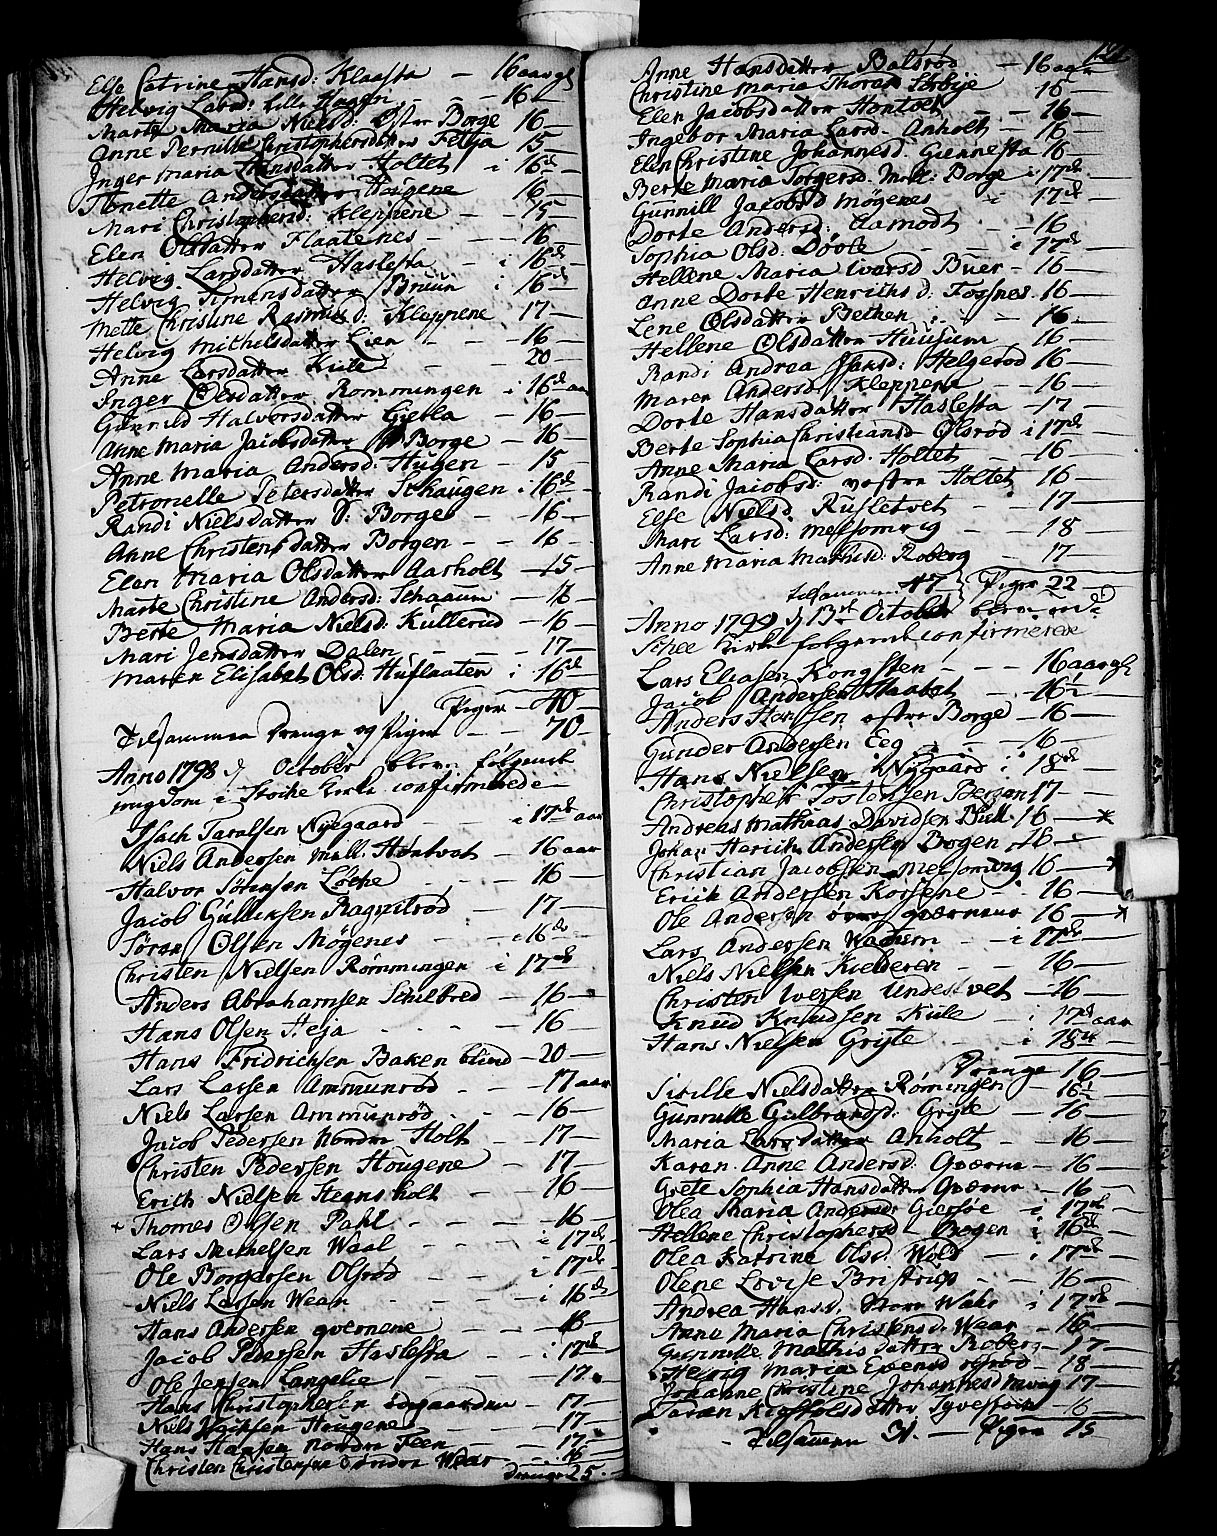 Else Catrine Hansd: Klaasta — 16 aar gl
Helvig Larsd: lille Hagen — 16 —
Marte Maria Nielsd: Øster Borge 16 —
Anne Pernille Christophersdatter Fettja 15 —
Inger Maria Hansdatter Holtet i 16de
Anette Andersdatter Hougene 16 —
Mari Christophersd: Kleppene — 15 —
Elen Olsdatter Flaatenes — 16 —
Helvig Larsdatter Haslesta — i 16de
Helvig Simensdatter Bruun i 16de
Mette Christine Rasmusd: Kleppene 17 —
Helvig Michelsdatter Lien — 16 —
Anne Larsdatter Kiile — 20 —
Inger Olsdatter Rommungen i 16de aar
Gunrild Halvorsdatter Gietla — 16 —
Anne Maria Jacobsdatter Borge — 16 —
Anne Maria Andersd: Hugen — 15 —
Petronelle Petersdatter Schaugen i 16de
Randi Nielsdatter S: Borge — 16 —
Anne Christensdatter Borgen — 16 —
Elen Maria Olsdatter Aarholt — 15 —
Marte Christine Andersd: Schaaum — 16
Berte Maria Nielsd: Kullerud — 16 —
Mari Jensdatter Dalen — 17 —
Maren Elisabet Olsd: Huflaaten i 16de
Piger — 40 —
Tilsammen Drenge og Piger — 70 —
Anno 1798 d October blev følgende
ungdom i Stocke Kirke confirmerede —
Isach Taralsen Nyegaard — i 17de aar
Niels Andersen Mell: Hontvet — 16 aar
Halvor Sørensen Løche — 16 —
Jacob Gulliksen Ragnitrod — 17 —
Søren Olsen Møgenes — i 16de
Christen Nielsen Rømmingen i 17de
Anders Abrahamsen Schilbred — 16 —
Hans Olsen Heja — 16 —
Hans Fridrichsen Baken blind — 20 —
Lars Larsen Ammunrød — 17 aar
Niels Larsen Ammunrød — 16 —
Jacob Pedersen Nordre Holt — 17 —
Christen Pedersen Hougene — 17 —
Erich Nielsen Steensholt — 16 —
+ Thomes Olsen Pahl — 16 —
Lars Michelsen Waal — i 17de
Ole Borgersen Olsrød — i 17de
Niels Larsen Wear — i 16de
Hans Andersen qvernene — 16 —
Jacob Pedersen Haslesta — i 17de
Ole Jensen Langelie — 17 —
Hans Christophersen ødegaarden — 17 —
Niels Isachsen Hougene — 17 —
Hans Hansen Nordre Feen — 17 —
Christen Christensen Søndre Wear — 16
Drenge 25
Anne Hansdatter Balsrød — 16 aar
Christine Maria Thoran Sørbye 16 —
Elen Jacobsdatter Hontvet — 16 —
Ingebor Maria Larsd. Anholt — 16 —
Elen Christine Johannesd. Giennesta 16 —
Berte Maria Torgersd. Mell: Borge i 17de
Gunnill Jacobsd Møgenes i 17de
Dorte Andersd: Aamodt — 16 —
Sophia Olsd. Døvle — i 17de
Hellene Maria Ivarsd Buer — 16 —
Anne Dorte Henrichsd: Fossnes 16 —
Lene Olsdatter Bekken — 16 —
Hellene Olsdatter Huusum 16 —
Randi Andrea Hansd: Helgerød 16 —
Maren Andersd Kleppene — 16 —
Dorte Hansdatter Haslesta — 17 —
Berte Sophia Christiansd Olsrød i 17de
Anne Maria Larsd. Holtet — 16 —
Randi Jacobsd: vestre Holtet 16 —
Else Nielsd. Rusletvet — 17 —
Mari Larsd: Melsomvig — 18 —
Anne Maria Mathisd. Roberg — 17 —
tilsammen 47 Piger 22
Anno 1799 d 13de October bleve udi
Stoche Kirke følgende confirmerede
Lars Eliasen Kongsten — 16 aar gl
Jacob Andersen Haabet — 16 1/2
Anders Hansen østre Borge — 16 —
Gunder Andersen Eeg — 16 —
Hans Nielsen Nygaard i 18de
Christopher Tostensen Berzen 17 —
Andreas Mathias Davidsen Bull 16 — *
Johan Herich Andersen Borgen 18 —
Christian Jacobsen Melsomvig 16 — *
Erich Andersen Korsene — 16 —
Ole Andersen qværnene 16 — *
Lars Andersen Wadum — i 17de
Niels Nielsen Kielderen — 16 —
Christen Iversen Undestvet — 16 —
Knud Knudsen Kiile — i 17de aar
Hans Nielsen Gryte — i 18de
Drenge 16 —
Sirille Nielsdatter Rømingen — 16 1/2
Gunnille Gulbrandsd: Gryte — 16
Maria Larsdatter Anholt — 16 —
Karen Anne Andersd. Qværne — 16 —
Grete Sophia Hansdatter Qværne — 16 —
Olea Maria Andersd: Giersøe i 17de
Hellene Christophersd. Bogen i 16de
Olea Katrine Olsd. Wold — i 17de
Olene Lovise Bristrup — 16 —
Andrea Hansd. Store Wahr i 17de
Anne Maria Christensd. Wear — 16 —
Gunnille Mathisdatter Roberg — 17 —
Helvig Maria Evensd — 18 —
Johanne Christine Johannesd 17 —
Taran 16 —
— Tilsammen 31. — Piger 15